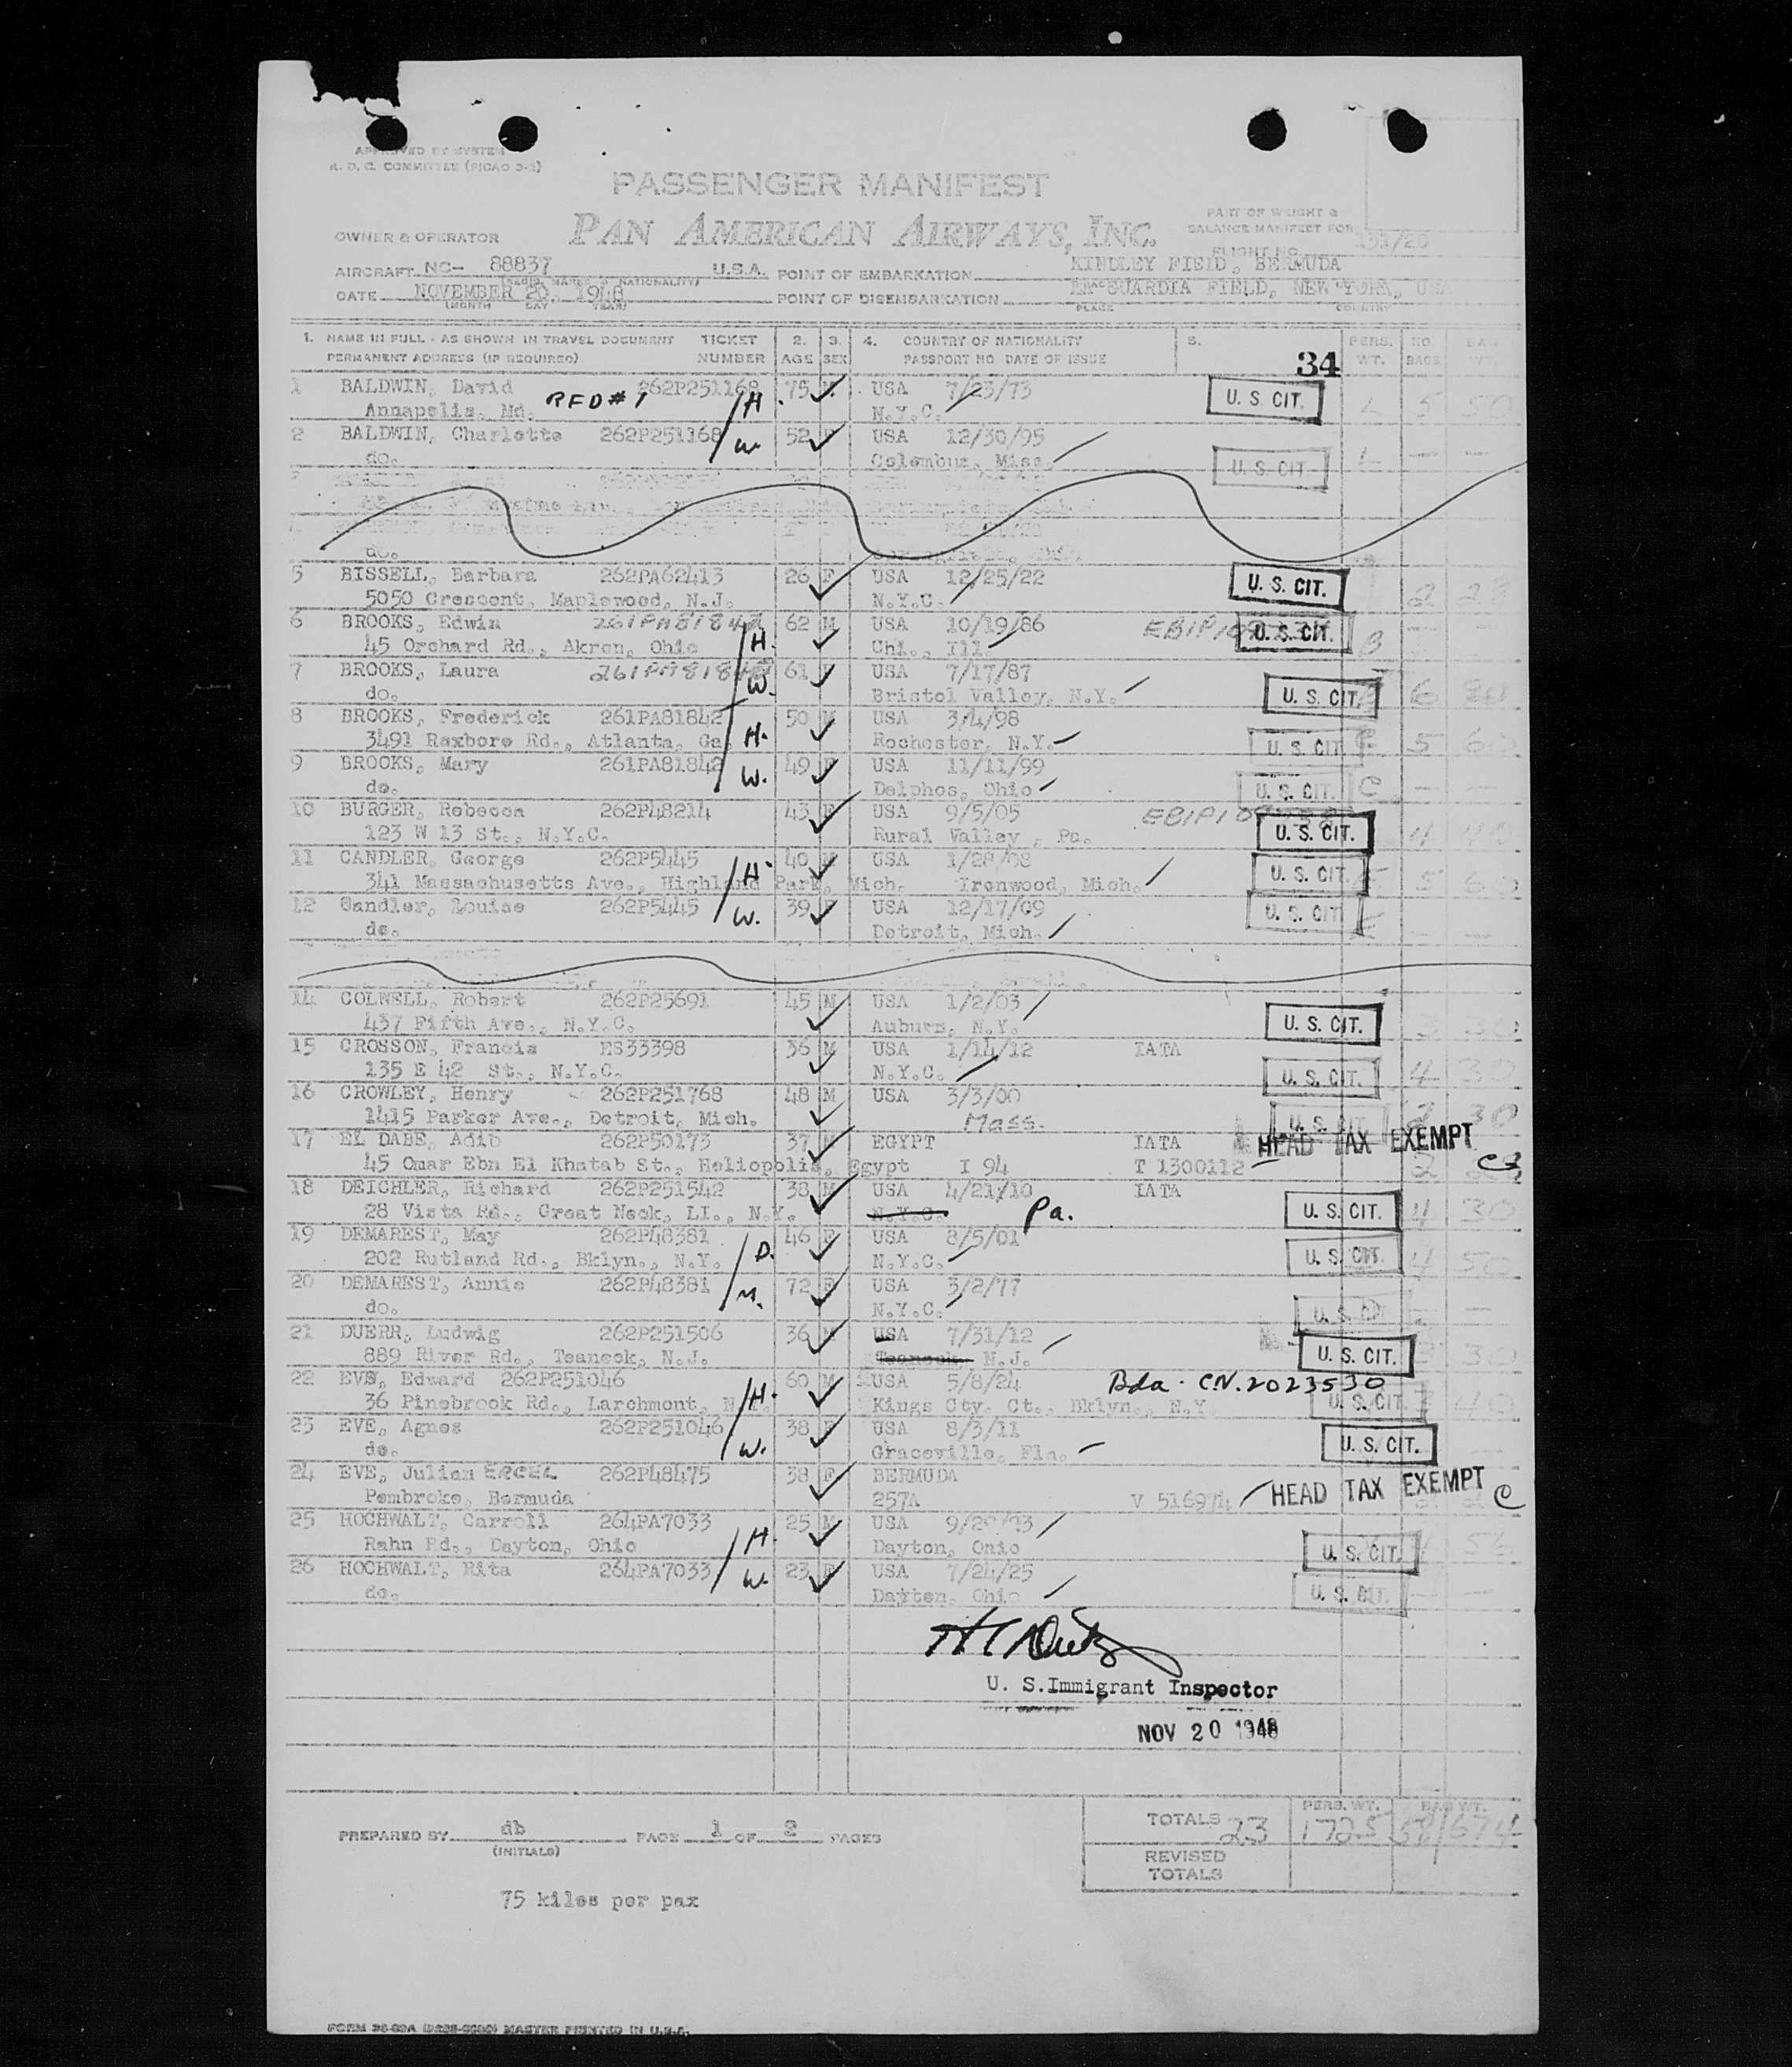 APPROVED BY SYSTEM
R. D. C. COMMITTEE (PICAO 3-2)
PASSENGER MANIFEST
PAN AMERICAN AIRWAYS, INC.
PART OF WEIGHT &
BALANCE MANIFEST FOR
FLIGHT NO. 131/20
OWNER & OPERATOR
AIRCRAFT NC- 88837 U.S.A. POINT OF EMBARKATION KINDLEY FIELD, BERMUDA
DATE NOVEMBER 20, 1948 POINT OF DISEMBARKATION GUARDIA FIELD, NEW YORK,
(MONTH DAY YEAR) PLACE COUNTRY
1. NAME IN FULL - AS SHOWN IN TRAVEL DOCUMENT TICKET 2. 3. 4. COUNTRY OF NATIONALITY 5. PERS. NO. BAG
PERMANENT ADDRESS (IF REQUIRED) NUMBER AGE SEX PASSPORT NO DATE OF ISSUE 34 WT. BAGS WT.
1 BALDWIN, David 262P251168 75 M USA 7/23/73 U. S. CIT. L 5 50
Annapolis, Md. RFD# 1 H N.Y.C.
2 BALDWIN, Charlotte 262P251168 52 F USA 12/30/95 U. S. CIT. L — —
do. W Columbus, Miss.
do.
5 BISSELL, Barbara 262PA62413 26 F USA 12/25/22 U. S. CIT. 2 28
5050 Crescent, Maplewood, N.J. N.Y.C.
6 BROOKS, Edwin 261PA81842 62 M USA 10/19/86 U. S. CIT. B
45 Orchard Rd., Akron, Ohio H. Chi., Ill.
7 BROOKS, Laura 61 F USA 7/17/87 U. S. CIT. 6
do. W. Bristol Valley, N.Y.
8 BROOKS, Frederick 261PA81842 50 M USA 3/4/98 U. S. CIT. 5 60
3491 Roxboro Rd., Atlanta, Ga. H. Rochester, N.Y.
9 BROOKS, Mary 261PA81842 49 F USA 11/11/99 U. S. CIT. C — —
do. W. Delphos, Ohio
10 BURGER, Rebecca 262P48214 43 F USA 9/5/05 U. S. CIT. 4 40
123 W 13 St., N.Y.C. Rural Valley , Pa.
11 CANDLER, George 262P5445 40 M USA 1/28/08 U. S. CIT. 5 60
341 Massachusetts Ave., Highland Park, Mich. H Ironwood, Mich.
12 Candler, Louise 262P5445 39 F USA 12/17/09 U. S. CIT. —
do. W. Detroit, Mich.
14 COLWELL, Robert 262P25691 45 M USA 1/2/03 U. S. CIT. 3 30
437 Fifth Ave., N.Y.C. Auburn, N.Y.
15 CROSSON, Francis ES33398 36 M USA 1/14/12 IATA U. S. CIT. 4 30
135 E 42 St., N.Y.C. N.Y.C.
16 CROWLEY, Henry 262P251768 48 M USA 3/3/00 U. S. CIT. 2 30
1415 Parker Ave., Detroit, Mich. Mass.
17 EL DABE, Adib 262P50173 37 M EGYPT IATA HEAD TAX EXEMPT
45 Omar Ebn El Khatab St., Heliopolis, Egypt I 94 T 1300112 2
18 DEICHLER, Richard 262P251542 38 M USA 4/21/10 IATA U. S. CIT. 4 30
28 Vista Rd., Great Neck, LI., N.Y. N.Y.C. Pa.
19 DEMAREST, May 262P48381 46 F USA 8/5/01 U. S. CIT. 4 50
202 Rutland Rd., Bklyn., N.Y. D. N.Y.C.
20 DEMAREST, Annie 262P48381 72 F USA 3/2/77 U. S. CIT. —
do. M. N.Y.C.
21 DUERR, Ludwig 262P251506 36 M USA 7/31/12 U. S. CIT. 3 30
889 River Rd., Teaneck, N.J. Teaneck, N.J.
22 EVE, Edward 262P251046 60 M USA 5/8/24 Bda. C.N. 2023530 U. S. CIT. 40
36 Pinebrook Rd., Larchmont, N. H. Kings Cty. Ct., Bklyn., N.Y.
23 EVE, Agnes 262P251046 38 F USA 8/3/11 U. S. CIT. —
do. W. Graceville, Fla.
24 EVE, Julian 262P48475 38 F BERMUDA HEAD TAX EXEMPT C
Pembroke, Bermuda 257A V 516974
25 HOCHWALT, Carroll 264PA7033 25 M USA U. S. CIT.
Rahn Rd., Dayton, Ohio H. Dayton, Ohio
26 HOCHWALT, Rita 264PA7033 23 F USA 7/24/25 U. S. CIT. — —
do. W. Dayton, Ohio
U. S. Immigrant Inspector
NOV 20 1948
PREPARED BY db PAGE 1 OF 2 PAGES
(INITIALS)
PERS. WT. BAG WT.
TOTALS 23 1725 58/674
REVISED
TOTALS
75 kilos per pax
MASTER PRINTED IN U.S.A.